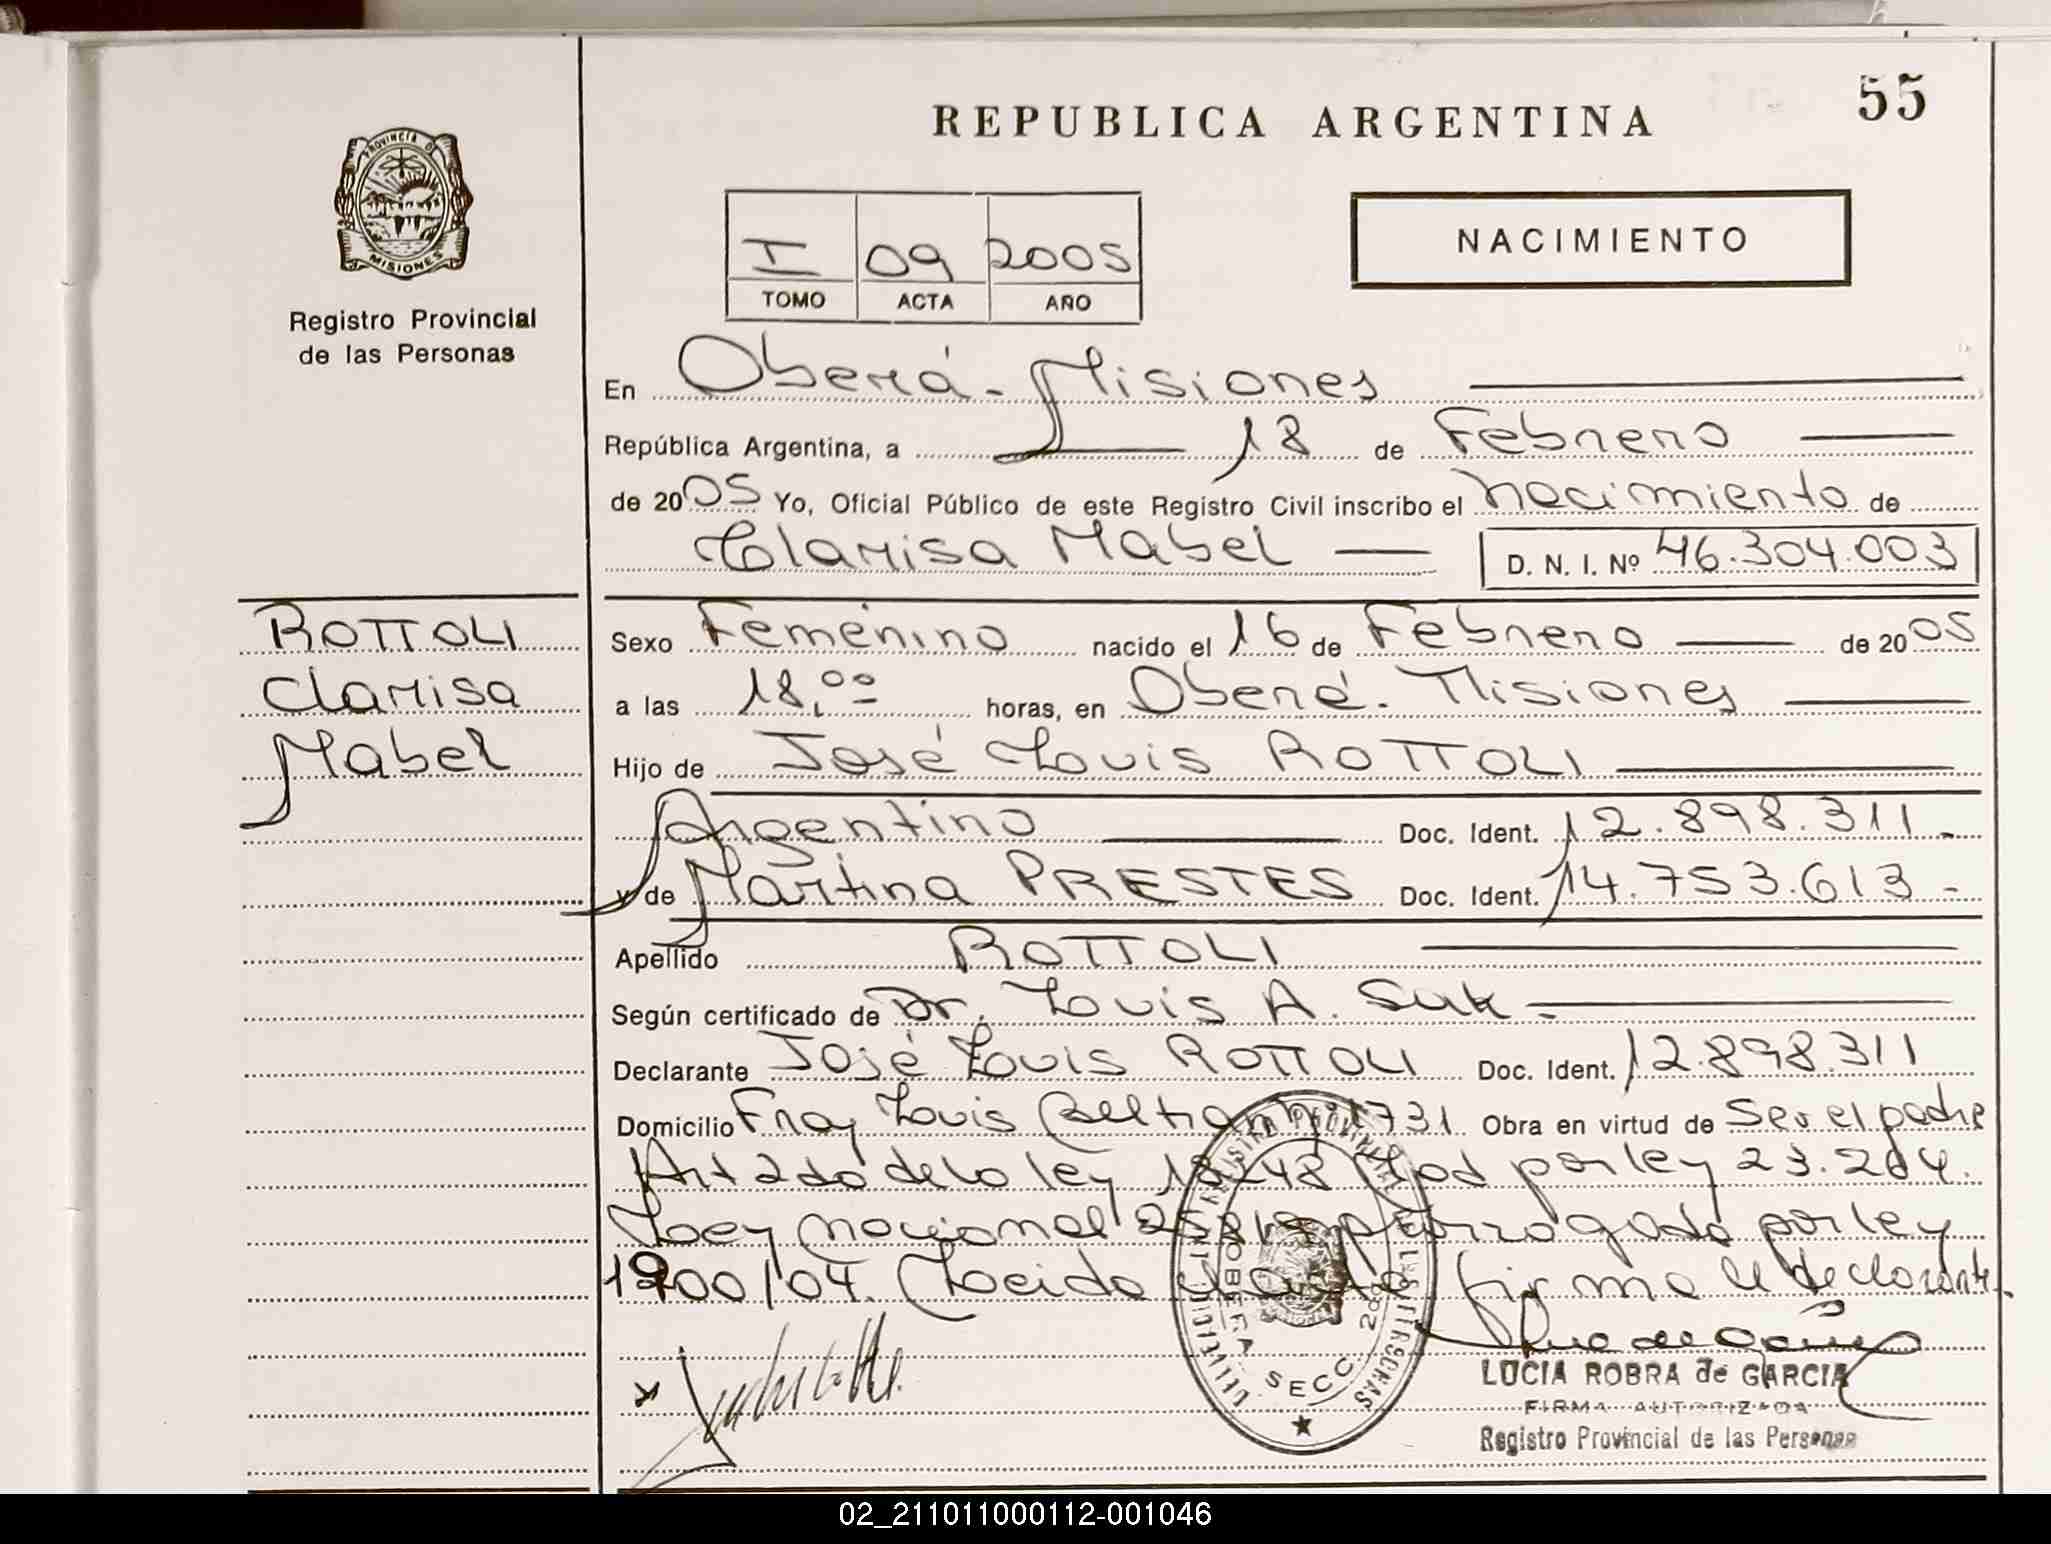 55
REPUBLICA ARGENTINA
PROVINCIA D
MISIONES
Registro Provincial
de las Personas
I 09 2005
TOMO ACTA AÑO
NACIMIENTO
En Oberá - Misiones
República Argentina, a 18 de Febrero
de 2005 Yo, Oficial Público de este Registro Civil inscribo el nacimiento de
Clarisa Mabel D. N. I. Nº 46.304.003
ROTTOLI
Clarisa
Mabel
Sexo Femenino nacido el 16 de Febrero de 2005
a las 18,00 horas, en Oberá - Misiones
Hijo de José Louis ROTTOLI
Argentino Doc. Ident. 12.898.311.-
y de Martina PRESTES Doc. Ident. 14.753.613 -
Apellido ROTTOLI
Según certificado de Dr. Louis A. Suk -
Declarante José Louis ROTTOLI Doc. Ident. 12.898.311
Domicilio Fray Louis Beltran 1731 Obra en virtud de Ser el padre
Art 2do de la ley 18248 Mod por ley 23.264.
Ley nacional por ley
1900/04. Leido el acta firma el declarante.
LUCIA ROBRA de GARCIA
FIRMA AUTORIZADA
Registro Provincial de las Personas
OBERA SECC. 2da
02_211011000112-001046